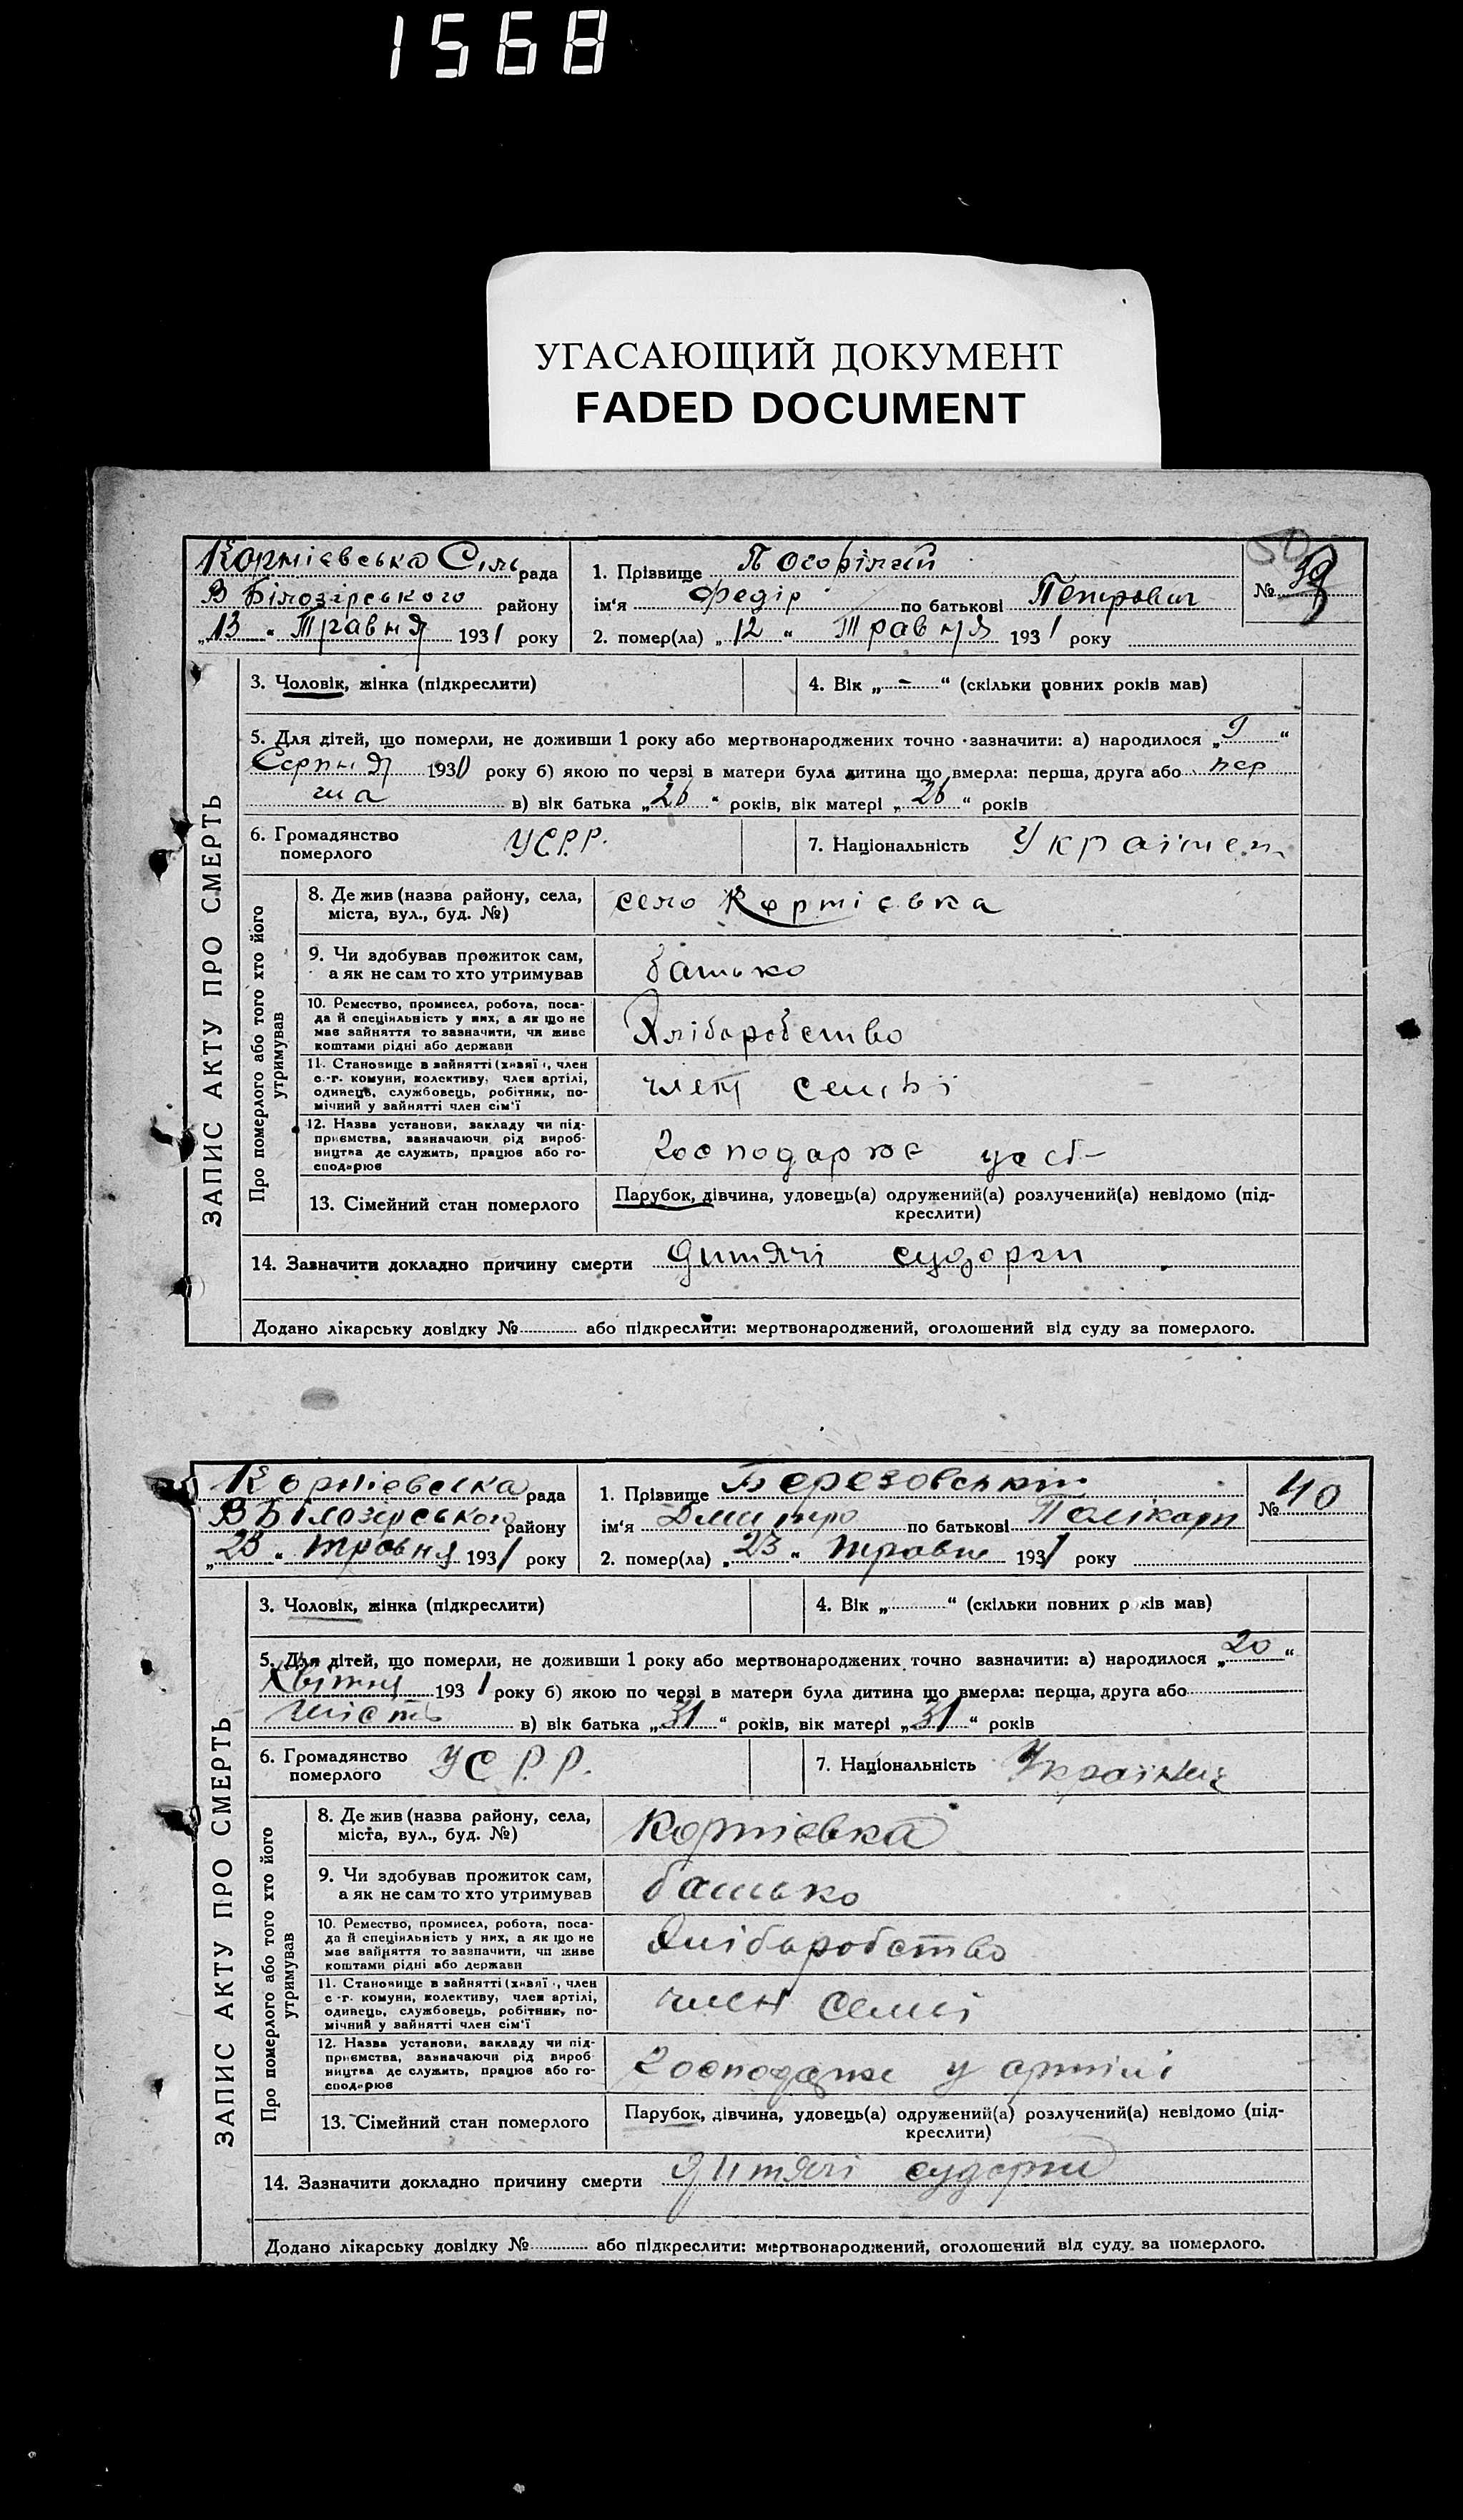 1568
УГАСАЮЩИЙ ДОКУМЕНТ
FADED DOCUMENT
Корнієвська Сіль рада
В Білозірського району
„13“ Травня 1931 року
1. Прізвище
ім‘я Федір по батькові Петрович
2. помер(ла) „12“ Травня 1931 року
№ 39
ЗАПИС АКТУ ПРО СМЕРТЬ
3. Чоловік, жінка (підкреслити)
4. Вік „-“ (скільки повних років мав)
5. Для дітей, що померли, не доживши 1 року або мертвонароджених точно зазначити: а) народилося
Серпня 1930 року б) якою по черзі в матери була дитина що вмерла: перша, друга або пер
ша в) вік батька „26“ років, вік матері „26“ років
6. Громадянство
померлого
УСРР.
7. Національність Українец
Про померлого або того хто його
утримував
8. Де жив (назва району, села,
міста, вул., буд. №)
село Корнієвка
9. Чи здобував прожиток сам,
а як не сам то хто утримував
батько
10. Ремество, промисел, робота, поса-
да й спеціяльність у них, а як що не
має зайняття то зазначити, чи живе
коштами рідні або держави
Хліборобство
11. Становище в зайнятті (хазяї, член
с.-г. комуни, колективу, член артілі,
одинець, службовець, робітник, по-
мічний у зайнятті член сім‘ї
член семьї
12. Назва установи, закладу чи під-
приємства, зазначаючи рід вироб-
ництва де служить, працює або го-
сподарює
госполарює
13. Сімейний стан померлого
Парубок, дівчина, удовець(а) одружений(а) розлучений(а) невідомо (під-
креслити)
14. Зазначити докладно причину смерти дитячі судорги
Додано лікарську довідку № або підкреслити: мертвонароджений, оголошений від суду за померлого.
Корнієвська рада
В Білозірського району
„23“ травня 1931 року
1. Прізвище Березовський
ім‘я Дмитро по батькові Полікарп
2. помер(ла) „23“ травня 1931 року
№ 40
ЗАПИС АКТУ ПРО СМЕРТЬ
3. Чоловік, жінка (підкреслити)
4. Вік „“ (скільки повних років мав)
5. Для дітей, що померли, не доживши 1 року або мертвонароджених точно зазначити: а) народилося „20“
Квітня 1931 року б) якою по черзі в матери була дитина що вмерла: перша, друга або
шість в) вік батька „31“ років, вік матері „31“ років
6. Громадянство
померлого
УСРР.
7. Національність
Про померлого або того хто його
утримував
8. Де жив (назва району, села,
міста, вул., буд. №)
Корнієвка
9. Чи здобував прожиток сам,
а як не сам то хто утримував
батько
10. Ремество, промисел, робота, поса-
да й спеціяльність у них, а як що не
має зайняття то зазначити, чи живе
коштами рідні або держави
Хліборобство
11. Становище в зайнятті (хазяї, член
с-г. комуни, колективу, член артілі,
одинець, службовець, робітник, по-
мічний у зайнятті член сім‘ї
член семі
12. Назва установи, закладу чи під-
приємства, зазначаючи рід вироб
ництва де служить, працює або го-
сподарює
у артілі
13. Сімейний стан померлого
Парубок, дівчина, удовець(а) одружений(а) розлучений(а) невідомо (під-
креслити)
14. Зазначити докладно причину смерти дитячі судорги
Додано лікарську довідку № або підкреслити: мертвонароджений, оголошений від суду за померлого.